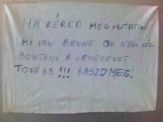 HA KÉRED MEGMUTATOM
MI VAN BENNE DE NEM KELL
BONTANI A
TOVÁBB!!! BASZD MEG!